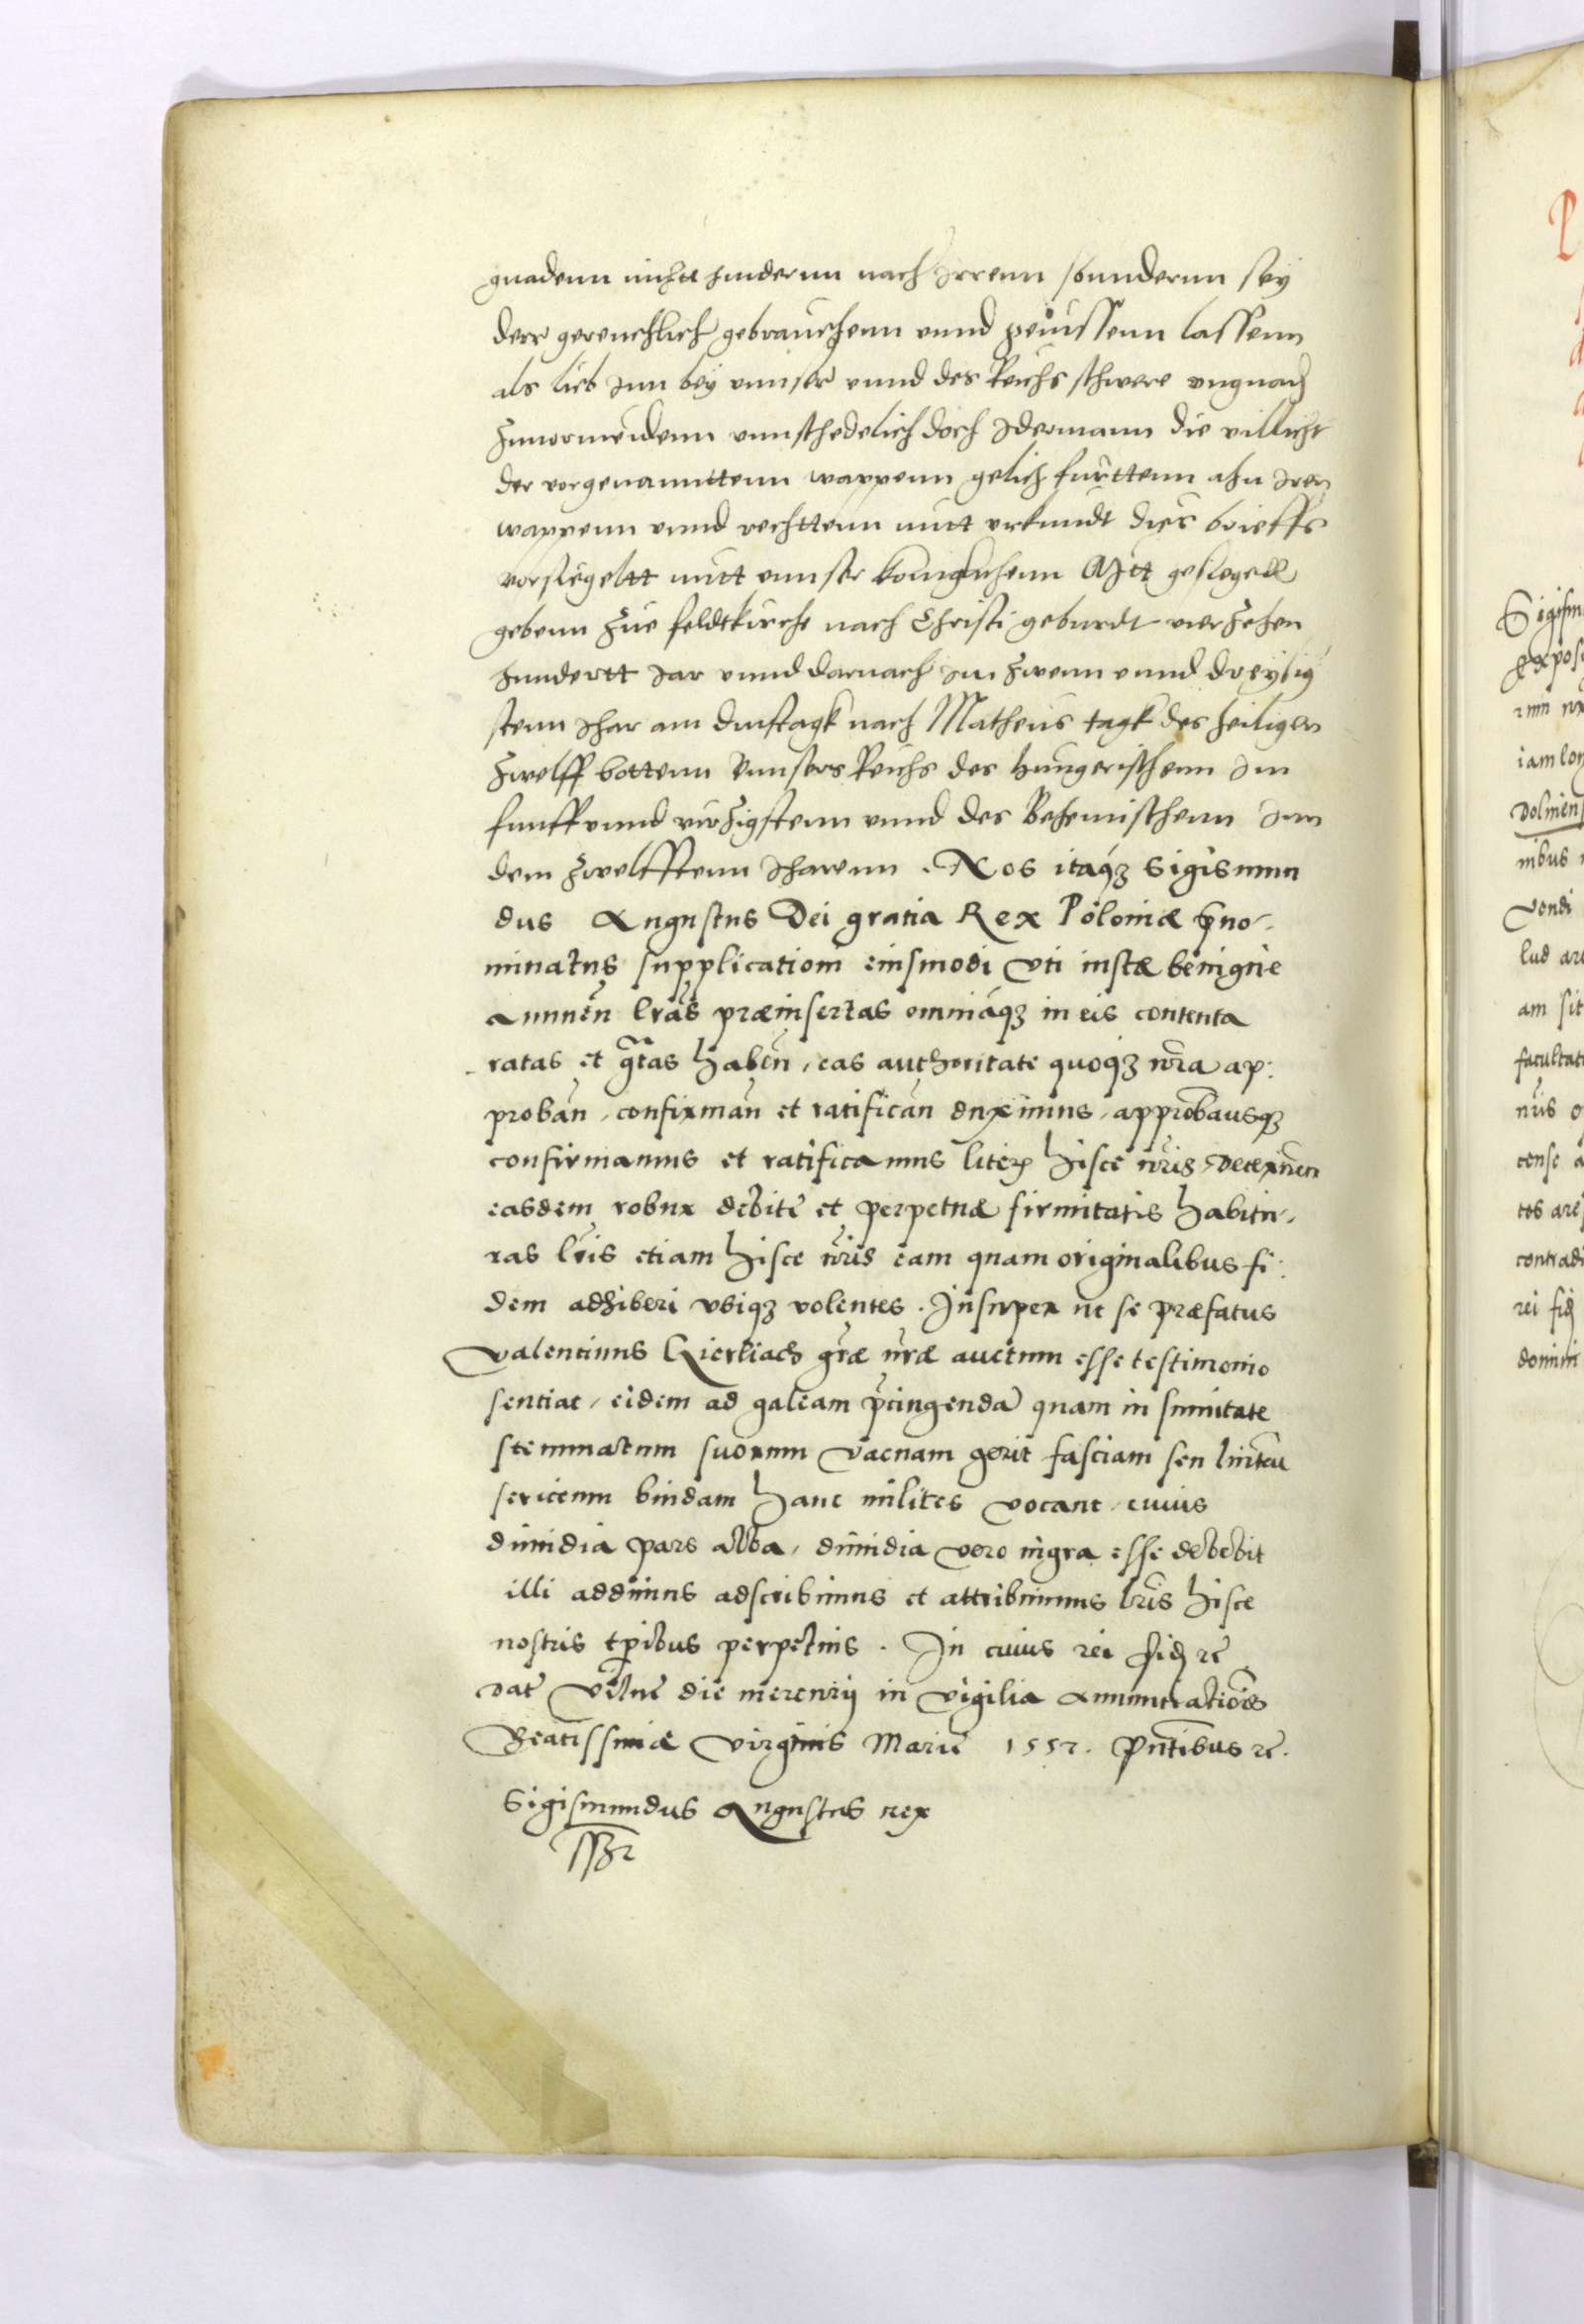 gnadenn nichtt hindernn nach Irrenn sounndernn sey
derr gereuchlich gebrauchenn vnnd genissenn lassenn
als lieb Inn bey vnnser vnnd des Reichs schwere vngnad
zuuormeidenn vnnschedelich doch Idermann die villicht
der vorgenannttenn wappenn gelich furttenn ahn Iren
wappenn vnnd rechttenn mitt vrkundt dies brieffs
vorsiegeltt mitt vnnser koniglichenn Mtt gesiegell
gebenn zue feldtkirche nach Christi geburdt vierzehen
hundertt Jar vnnd darnach im zwenn vnnd dreysig
stenn Jhar am dinstagk nach Matheus tagk des heiligen
zwelff bottenn Vnnsers Reichs des hungerischenn Im
funff vnnd virzigstenn vnnd des Behemischenn Inn
dem zwelfftenn Jharenn. Nos itaqz Sigismun
dus Augustus Dei gratia Rex Poloniæ p̃no-
minatus supplicationi eiusmodi vti iustæ benigne
annueñ lrãs præinsertas omniaqz in eis contenta
ratas et grãtas habeñ, eas authoritate quoqz nr̃a ap:
probañ, confirmañ et ratificañ duximus, approbamusqz
confirmamus et ratificamus literis hisce nr̃is, decerneñ
easdem robur debite et perpetuæ firmitatis habitu-
ras lr̃is etiam hisce nr̃is eam quam originalibus fi:
dem adhiberi vbiqz volentes. Insuper ut se præfatus
Valentinus Kierliach grãæ nr̃æ auctum esse testimonio
sentiat, eidem ad galeam p̃cingendã quam in sumitate
stemmatum suorum vacuam gerit fasciam seu linteũ
sericeum bindam hanc milites vocant, cuius
dimidia pars alba, dimidia vero nigra esse debebit
illi addimus adscribimus et attribuimus lr̃is hisce
nostris tp̃ibus perpetuis. In cuius rei fid̃ rc̃
Dat̃ Vilne die mercurij in vigilia Annuntiatiõis
Beatissimæ Virginis Marie 1557. Pñtibus rc̃.
Sigismundus Augustus rex
sszt